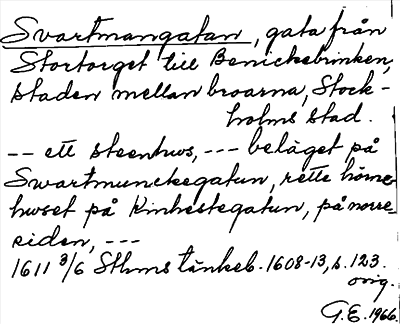 Svartmangatan, gata från
Stortorget till Benickebrinken,
staden mellan broarna, Stock-
holms stad.
-- ett steenhus, --- beläget på
Swartmunckegatun, rette hörne-
huset på Kinhestegatun, på norre
siden, ---
1611 3/6 Sthms tänkeb. 1608-13, s. 123.
orig.
G.E. 1966.